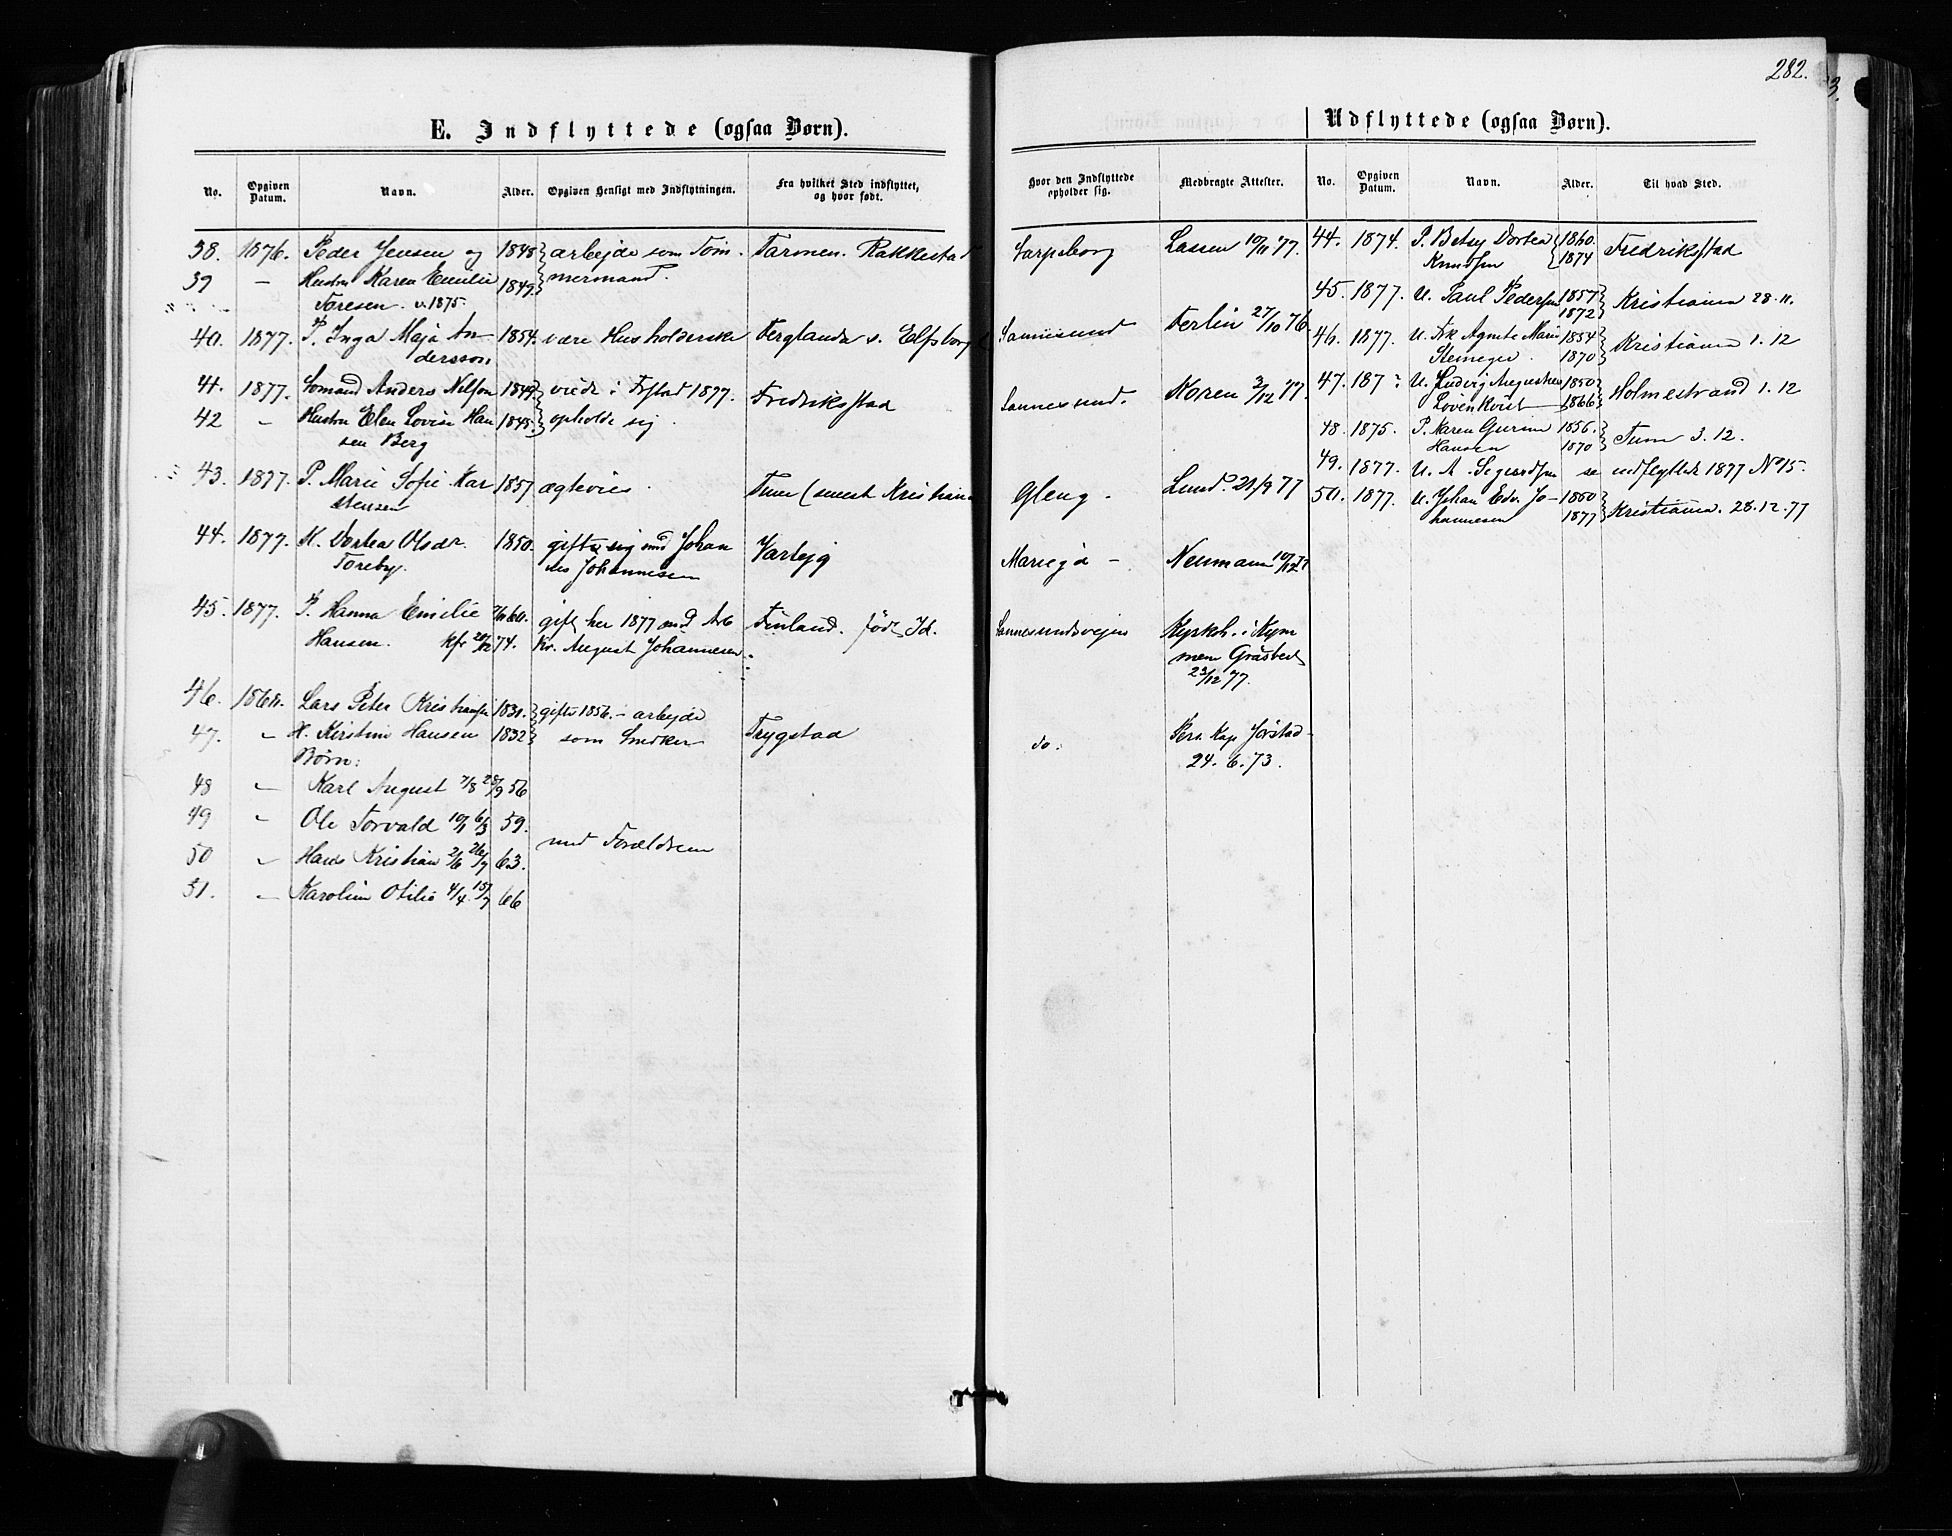 282.
3.
E. Indflyttede (ogsaa Børn).
No. Opgiven Datum. Navn. Alder. Opgiven Hensigt med Indflytningen. Fra hvilket Sted indflyttet, og hvor født.
38. 1876. Peder Jensen og 1848 arbejde som Tøm- Tarmen. Rakkestad
39 - Hustru Karen Emilie 1849 mermand.
Toresen. v. 1875.
40. 1877. P. Inga Maja An- 1854. være Husholderske Ferglanda v. Elfsborg
dersson
41. 1877. Sømand Anders Nilsen 1849 viede i Fstad 1877. Fredriksstad
42 " Hustru Elen Lovise Han 1848 opholde sig.
sen Berg
43. 1877. P. Marie Sofie Kar 1857 ægtevies. Tune (senest Kristiania
stensen
44. 1877. K. Dortea Olsdr. 1850. gifte sig med Johan Varteig
Toreby. nes Johannesen
45. 1877. P. Hanna Emilie gift her 1877 med Arb Finland. født Id.
Hansen. Kfr 20/12 74. Kr. August Johannesen
46. 1868. Lars Peter Kristiansen 1831. gifte 1856. - arbejde
47. " H. Kirstine Hansen 1832 som Snedker Trygstad
Børn:
48 " Karl August 7/8 28/9 56
49 " Ole Torvald 10/1 6/3 59.
50 " Hans Kristian 2/6 26/7 63. med Forældrene
51. " Karolin Otilie 4/4 15/7 66
Hvor den Indflyttede opholder sig. Medbragte Attester.
Sarpsborg Lassen 10/11 77.
Sannesund Ferlin 27/10 76.
Sannesund. Koren 3/12 77.
Gleng. Lund. 21/9 77
Mariegd - Neumann 10/12 77
Sannesundsvejen Kyrkoh. i Kym
mene Gråsbeck
23/12 77.
do. Pers. Kap Jørstad
24. 6. 73.
Udflyttede (ogsaa Børn).
No. Opgiven Datum. Navn. Alder. Til hvad Sted.
44. 1874. P. Betsy Dortea 1860. Fredriksstad
Knudsen 1874
45. 1877. U. Paul Pedersen 1857 Kristiania 28. 11.
1872
46. 1877. U. Frk Agnete Marie 1854 Kristiania 1. 12
Steneger. 1870
47. 187 U. Ludvig Augustines 1850 Holmestrand 1. 12
Løvenkvist 1866
48. 1875. P. Karen Gurine 1856. Tune 3. 12.
Hansen 1870
49. 1877. U. A. Sigurdsen se indflyttede 1877 No 15.
50. 1877. U. Johan Edv. Jo- 1860 Kristiania. 28. 12. 77
hannesen 1877